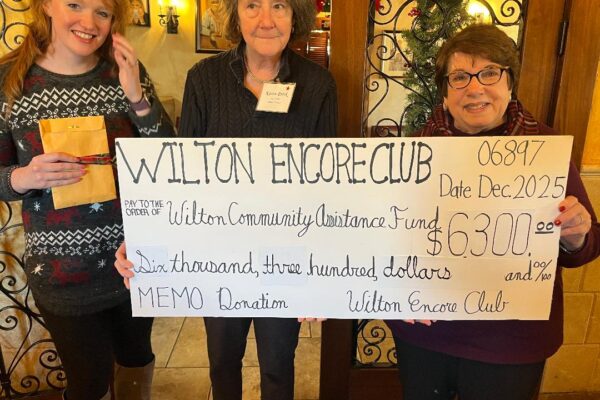 WILTON ENCORE CLUB 06897
Date Dec. 2025
PAY TO THE
ORDER OF Wilton Community Assistance Fund $6,300.00
Six thousand, three hundred, dollars and 00/100
MEMO Donation Wilton Encore Club